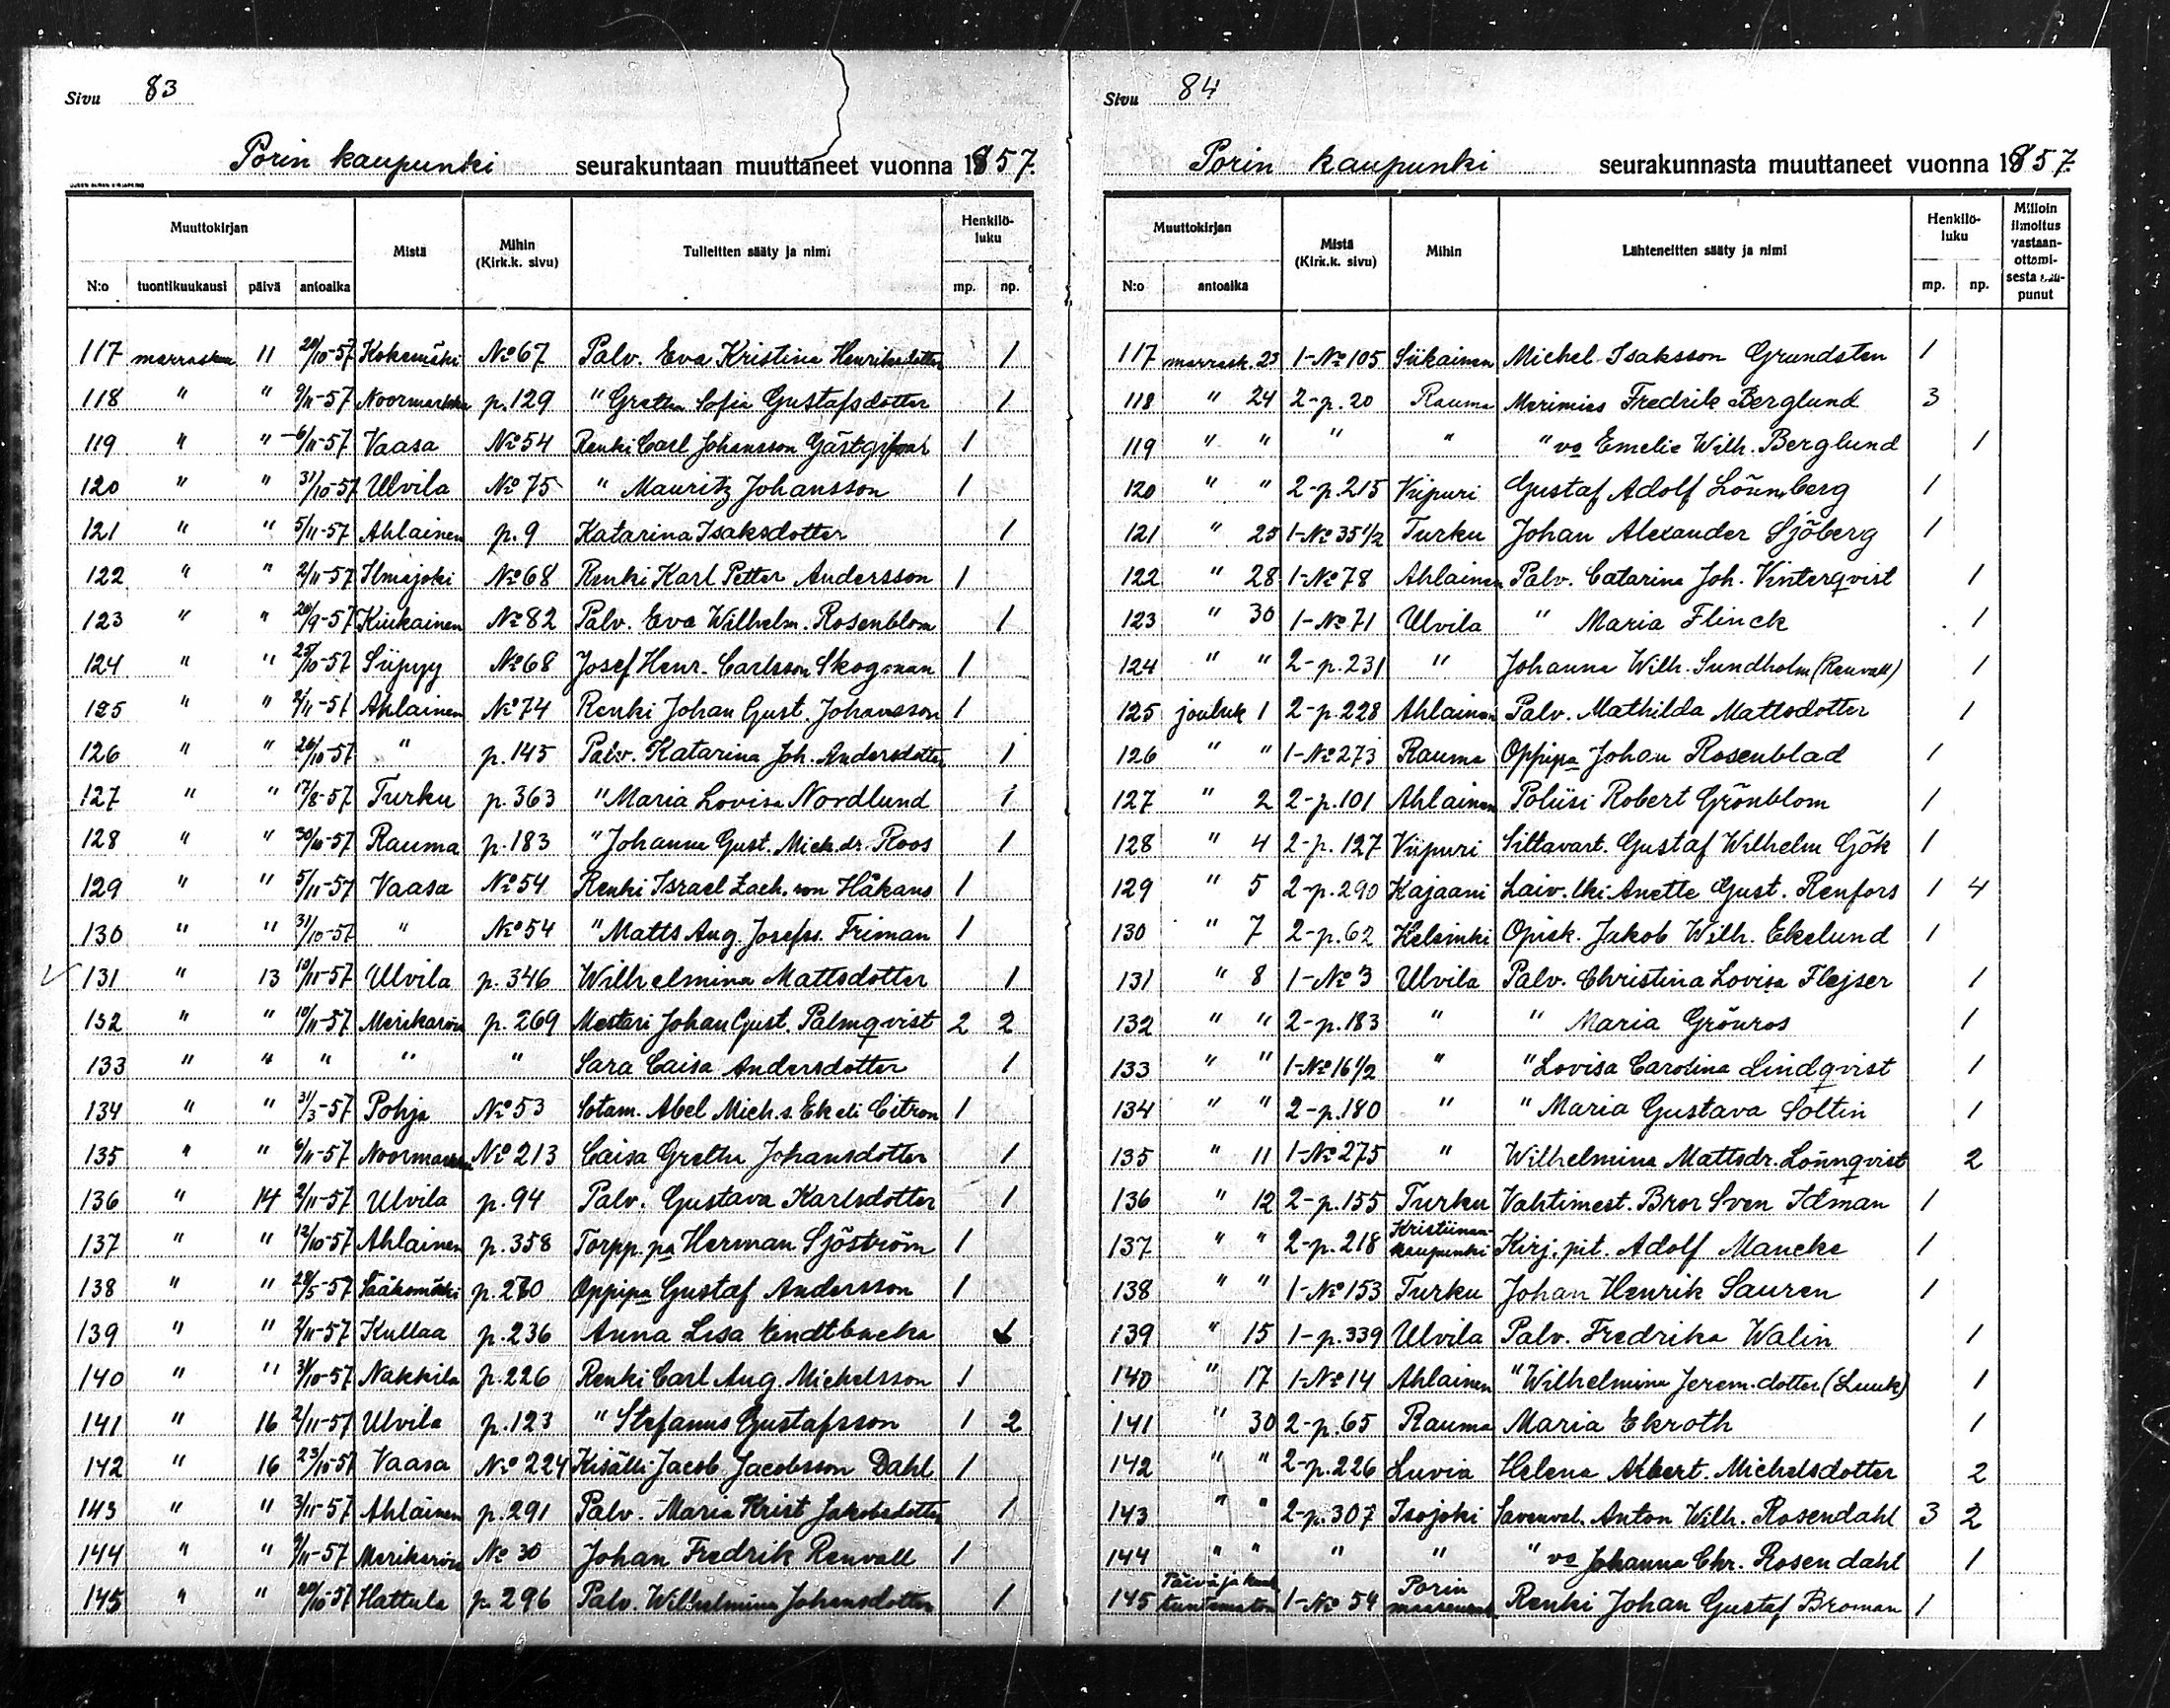 Sivu 83
Porin kaupunki seurakuntaan muuttaneet vuonna 1857.
Muuttokirjan Mistä Mihin (Kirk.k. sivu) Tulleitten sääty ja nimi Henkilöluku
N:o tuontikuukausi päivä antoaika mp. np.
117 marraskuu 11 20/10-57 Kokemäki No 67 Palv. Eva Kristina Henriksdotter 1
118 " " 9/11-57 Noormarkku p. 129 " Gretha Sofia Gustafsdotter 1
119 " " 6/11-57 Vaasa No 54 Renki Carl Johansson Gästgifvar 1
120 " " 31/10-57 Ulvila No 75 " Mauritz Johansson 1
121 " " 5/11-57 Ahlainen p. 9 Katarina Isaksdotter 1
122 " " 2/11-57 Ilmajoki No 68 Renki Karl Petter Andersson 1
123 " " 26/9-57 Kiukainen No 82 Palv. Eva Wilhelm. Rosenblom 1
124 " " 25/10-57 Siipyy No 68 Josef Henr. Carlsson Skogman 1
125 " " 2/11-57 Ahlainen No 74 Renki Johan Gust. Johansson 1
126 " " 26/10-57 " p. 145 Palv. Katarina Joh. Andersdotter 1
127 " " 17/8-57 Turku p. 363 " Maria Lovisa Nordlund 1
128 " " 30/10-57 Rauma p. 183 " Johanna Gust. Mich.dr. Roos 1
129 " " 5/11-57 Vaasa No 54 Renki Israel Zach. son Håkans 1
130 " " 31/10-57 " No 54 " Matts Aug. Josefss. Friman 1
131 " 13 10/11-57 Ulvila p. 346 Wilhelmina Mattsdotter 1
132 " " 10/11-57 Merikarvia p. 269 Mestari Johan Gust. Palmqvist 2 2
133 " " " " " Sara Caisa Andersdotter 1
134 " " 31/3-57 Pohja No 53 Sotam. Abel Mich.s. Ek eli Citron 1
135 " " 6/11-57 Noormarkku No 213 Caisa Gretha Johansdotter 1
136 " 14 2/11-57 Ulvila p. 94 Palv. Gustava Karlsdotter 1
137 " " 12/10-57 Ahlainen p. 358 Torpp. pa Herman Sjöström 1
138 " " 28/5-57 Sääksmäki p. 280 Oppipa Gustaf Andersson 1
139 " " 2/11-57 Kullaa p. 236 Anna Lisa Lindtbacka 1
140 " " 31/10-57 Nakkila p. 226 Renki Carl Aug. Michelsson 1
141 " 16 2/11-57 Ulvila p. 123 " Stefanus Gustafsson 1 2
142 " 16 23/10-57 Vaasa No 224 Kisälli Jacob Jacobsson Dahl 1
143 " " 3/11-57 Ahlainen p. 291 Palv. Maria Krist Jakobsdotter 1
144 " " 9/11-57 Merikarvia No 30 Johan Fredrik Renvall 1
145 " " 20/10-57 Hattula p. 296 Palv. Wilhelmina Johansdotter 1
Sivu 84
Porin kaupunki seurakunnasta muuttaneet vuonna 1857.
Muuttokirjan Mistä (Kirk.k. sivu) Mihin Lähteneitten sääty ja nimi Henkilöluku Milloin ilmoitus vastaanottamisesta saapunut
N:o antoaika mp. np.
117 marrask. 23 1-No 105 Siikainen Michel Isaksson Grundsten 1
118 " 24 2-p. 20 Rauma Merimies Fredrik Berglund 3
119 " " " " " vo Emelie Wilh. Berglund 1
120 " " 2-p. 215 Viipuri Gustaf Adolf Lönnberg 1
121 " 25 1-No 35 1/2 Turku Johan Alexander Sjöberg 1
122 " 28 1-No 78 Ahlainen Palv. Catarina Joh. Vinterqvist 1
123 " 30 1-No 71 Ulvila " Maria Flinck 1
124 " " 2-p. 231 " Johanna Wilh. Sundholm (Renvall) 1
125 jouluk 1 2-p. 228 Ahlainen Palv. Mathilda Mattsdotter 1
126 " " 1-No 273 Rauma Oppipa Johan Rosenblad 1
127 " 2 2-p. 101 Ahlainen Poliisi Robert Grönblom 1
128 " 4 2-p. 127 Viipuri Siltavart. Gustaf Wilhelm Gök 1
129 " 5 2-p. 290 Kajaani Laiv. lki Anette Gust. Renfors 1 4
130 " 7 2-p. 62 Helsinki Opisk. Jakob Wilh. Ekelund 1
131 " 8 1-No 3 Ulvila Palv. Christina Lovisa Flejser 1
132 " " 2-p. 183 " " Maria Grönros 1
133 " " 1-No 16 1/2 " " Lovisa Carolina Lindqvist 1
134 " " 2-p. 180 " " Maria Gustava Soltin 1
135 " 11 1-No 275 " Wilhelmina Mattsdr. Lönnqvist 2
136 " 12 2-p. 155 Turku Vahtimest. Bror Sven Idman 1
137 " " 2-p. 218 Kristiinankaupunki Kirj. pit. Adolf Mancke 1
138 " " 1-No 153 Turku Johan Henrik Sauren 1
139 " 15 1-p. 339 Ulvila Palv. Fredrika Walin 1
140 " 17 1-No 14 Ahlainen " Wilhelmina Jerem.dotter (Luuk) 1
141 " 30 2-p. 65 Rauma Maria Ekroth 1
142 " " 2-p. 226 Luvia Helena Albert. Michelsdotter 2
143 " " 2-p. 307 Isojoki Savenval. Anton Wilh. Rosendahl 3 2
144 " " " " " vo Johanna Chr. Rosendahl 1
145 Päivä ja kuuk. tuntematon 1-No 54 Porin maaseurak. Renki Johan Gustaf Broman 1